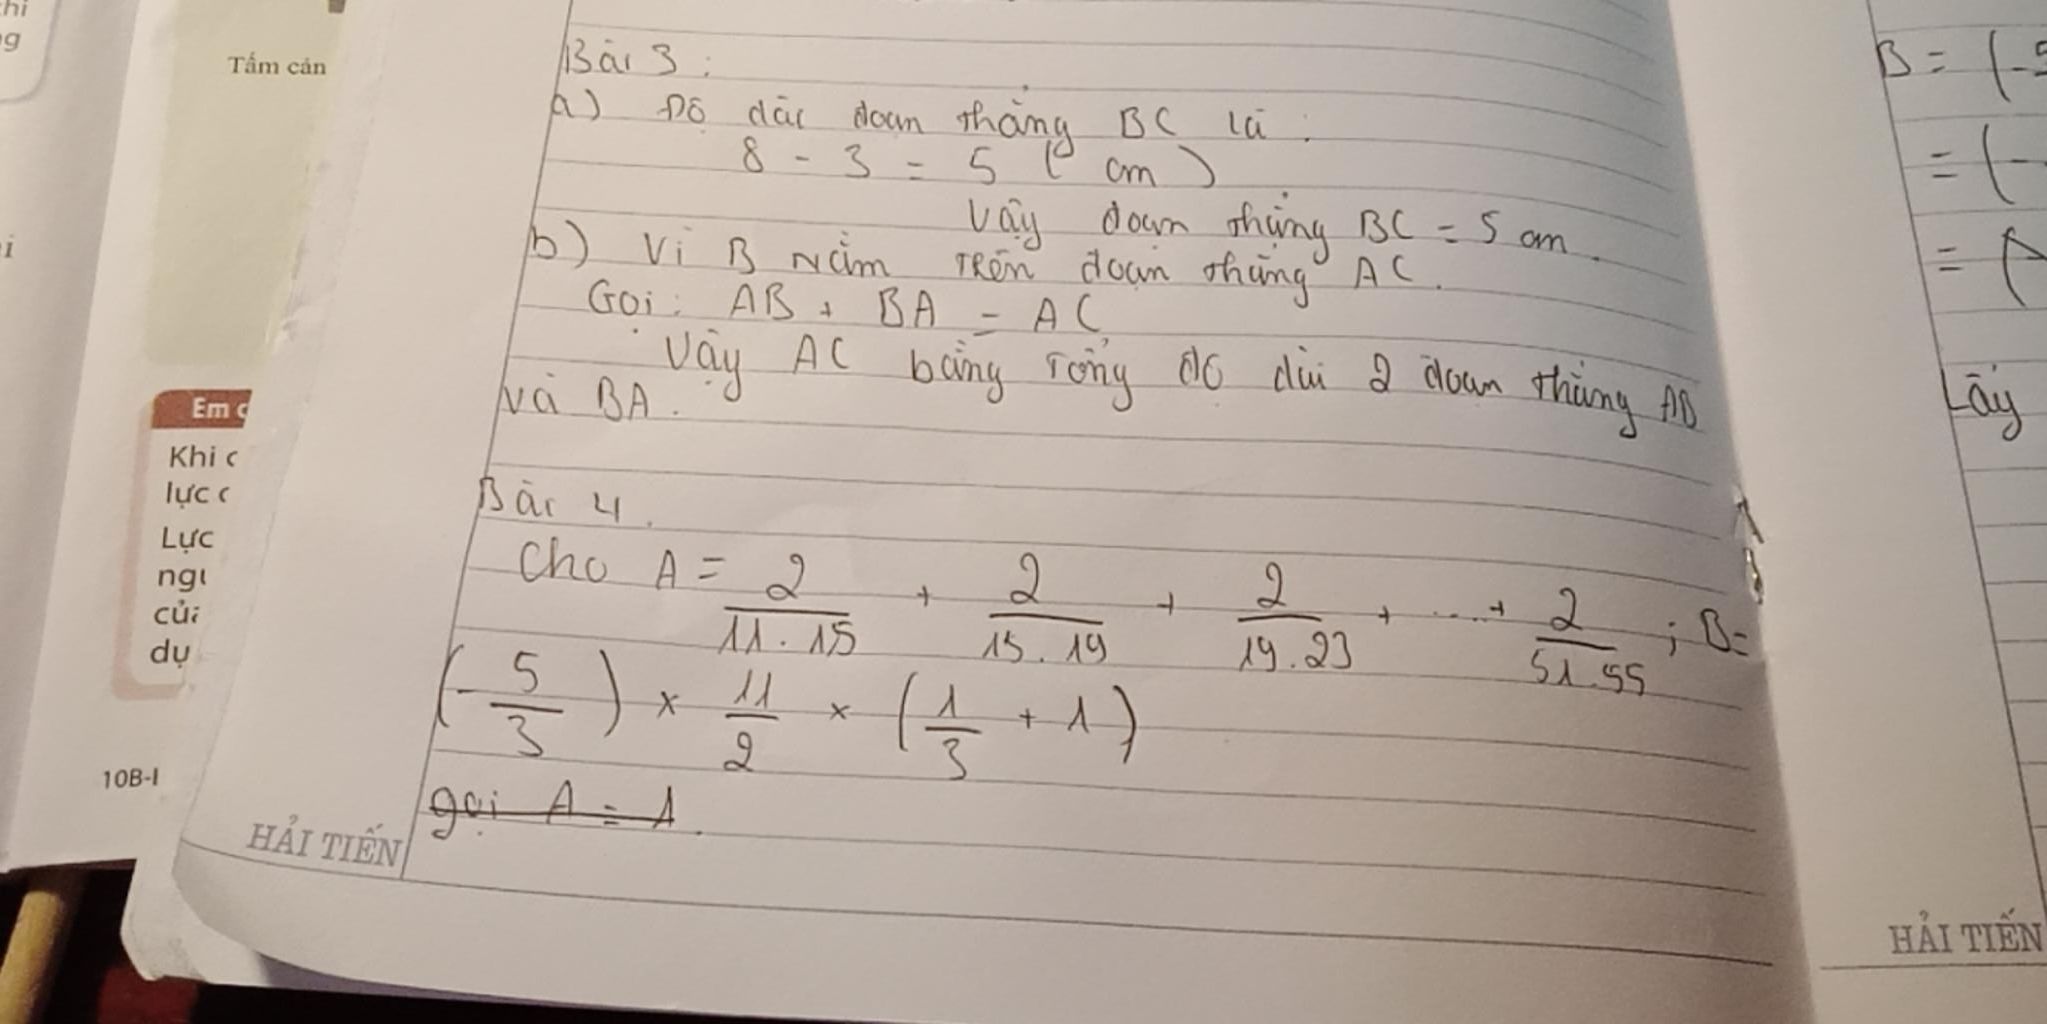 hi
g
i
Tấm cản
Em
Khi c
lực c
Lực
ngu
của
dụ
10B-I
Bài 3:
a) Độ dài đoạn thẳng BC là:
8 - 3 = 5 ( cm )
Vậy đoạn thẳng BC = 5 cm.
b) Vì B nằm trên đoạn thẳng AC.
Gọi: AB + BA = AC
Vậy AC bằng tổng độ dài 2 đoạn thẳng AB
và BA.
Bài 4.
Cho A = 2/11.15 + 2/15.19 + 2/19.23 + ... + 2/51.55 ; B=
(-5/3) × 11/2 × (1/3 + 1)
gọi A = 1.
HẢI TIẾN
B = (-5
= (-
= (
Lấy
HẢI TIẾN